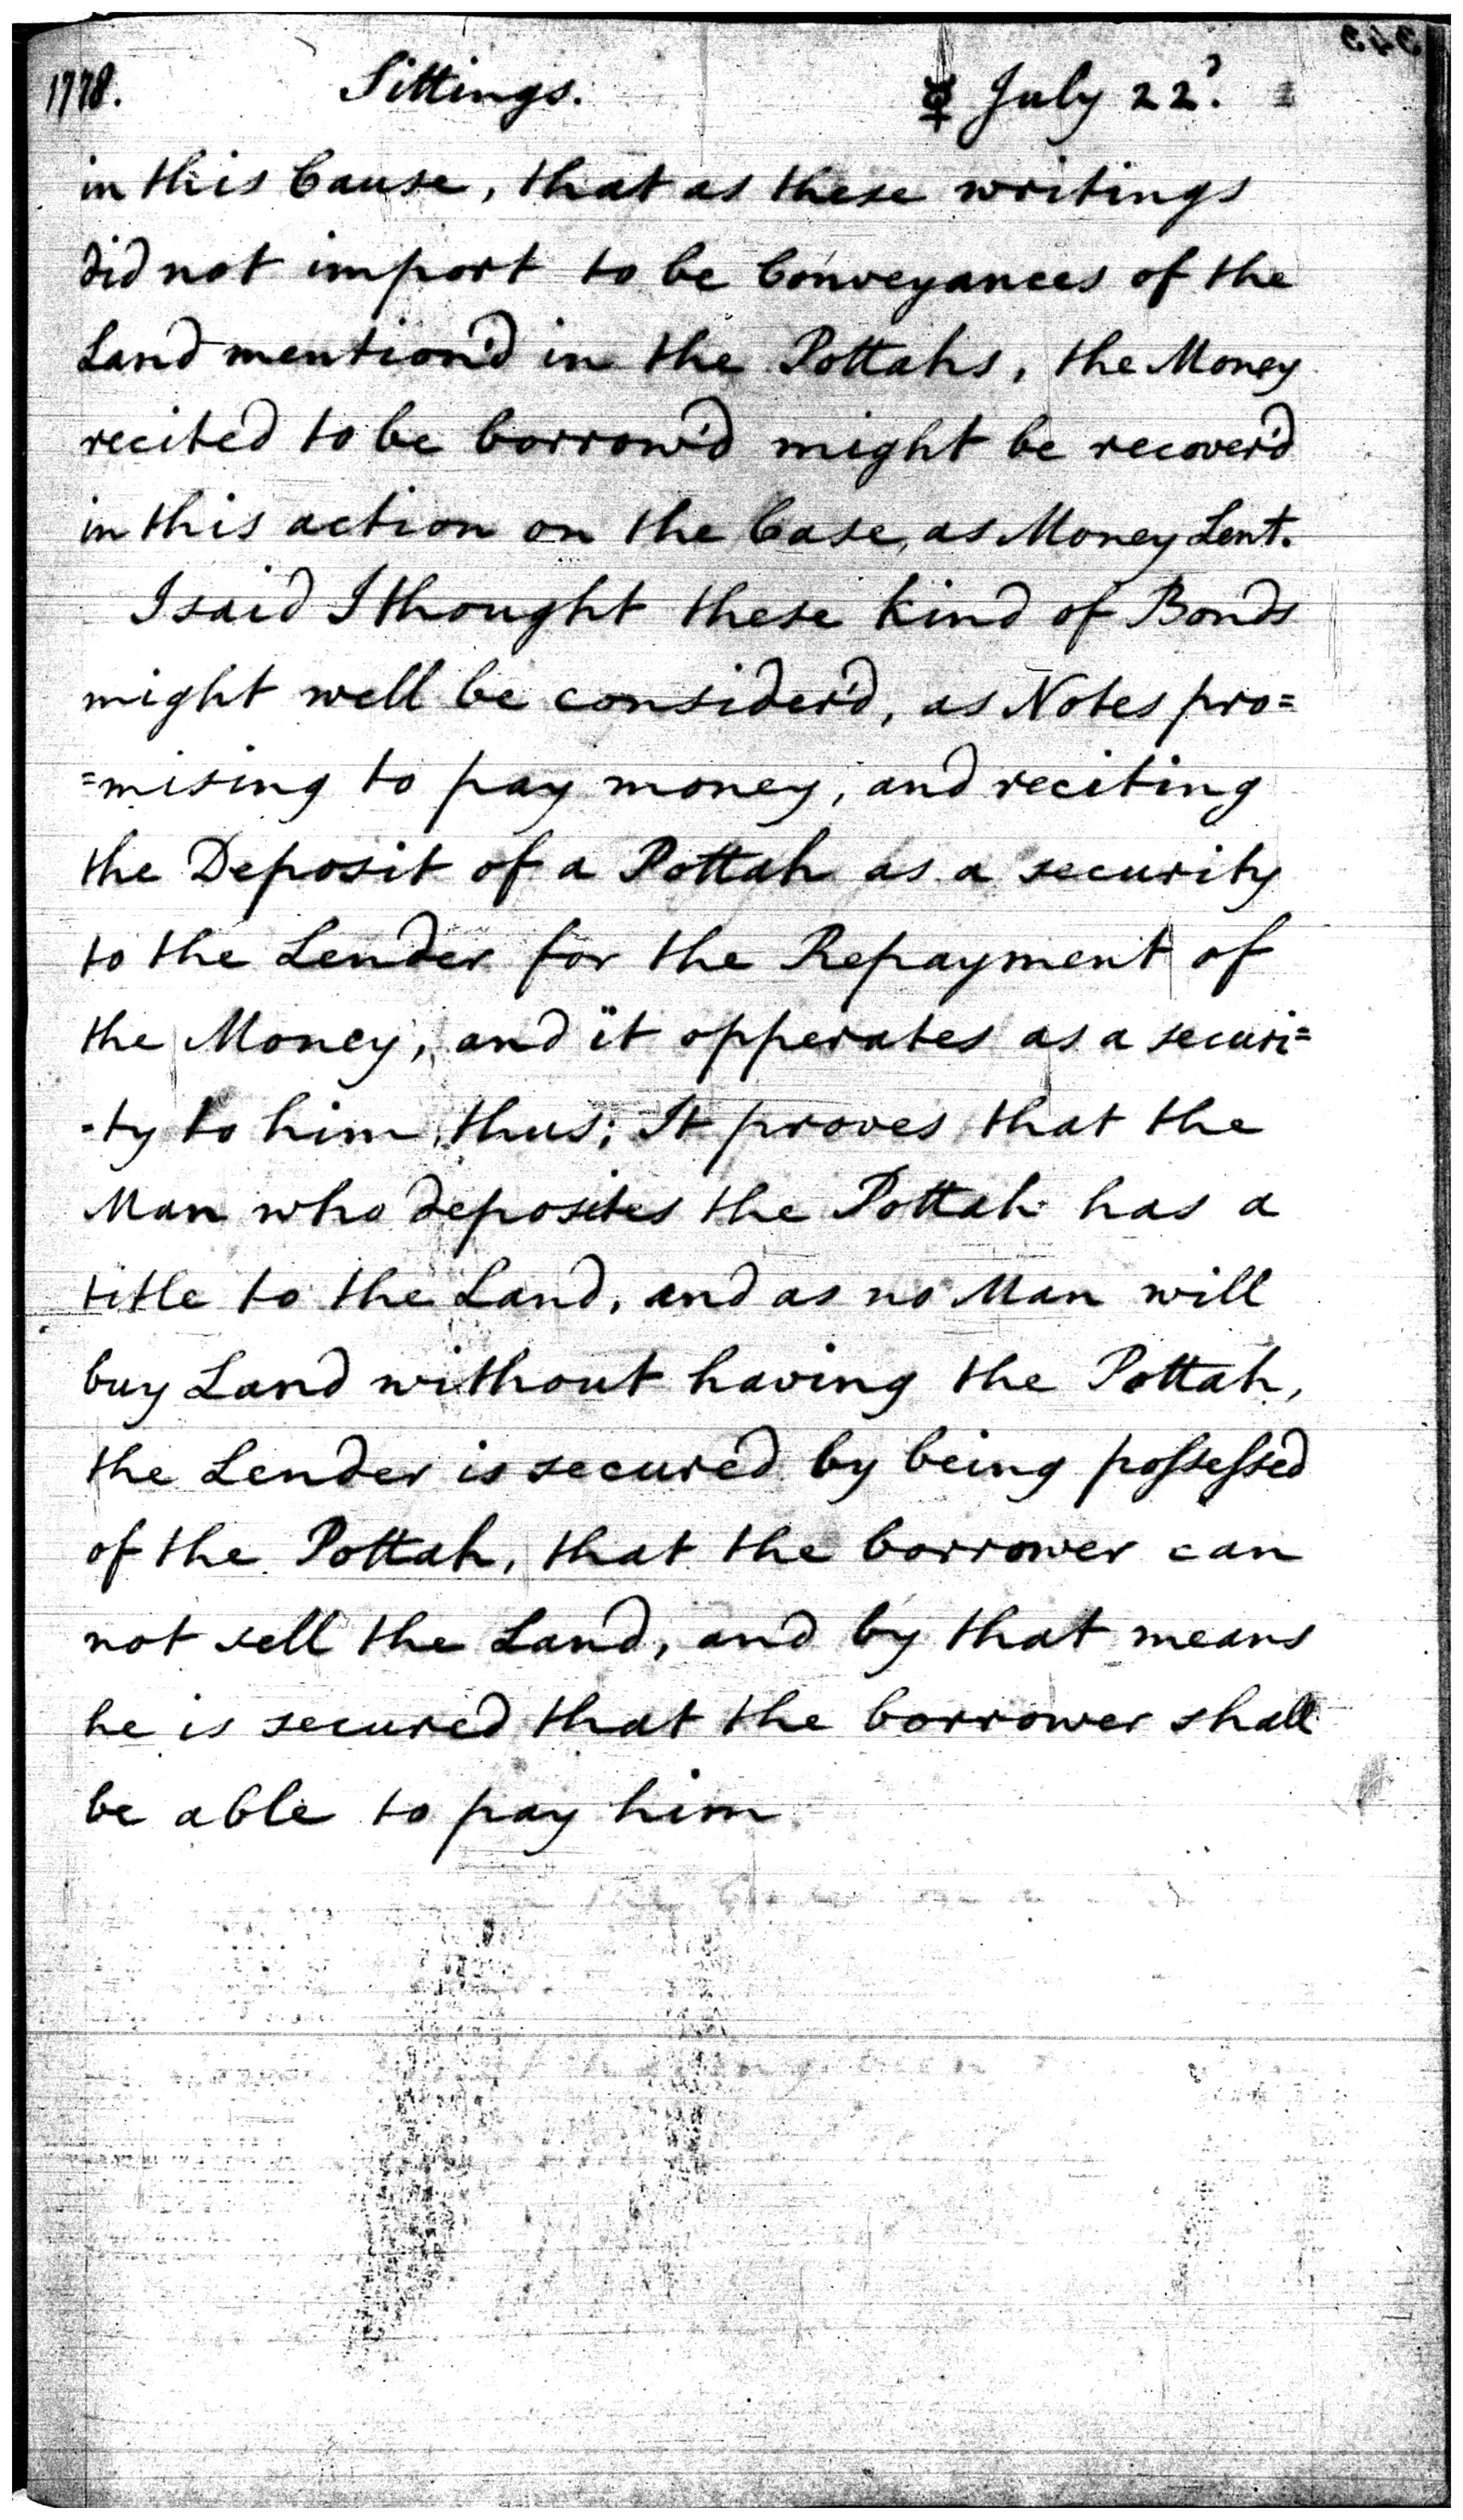 1778. Sittings. ☿ July 22d.
in this Cause, that as these writings
did not import to be Conveyances of the
Land mention'd in the Pottahs, the Money
recited to be borrow'd might be recover'd
in this action on the Case, as Money Lent.
I said I thought these kind of Bonds
might well be consider'd, as Notes pro=
=mising to pay money, and reciting
the Deposit of a Pottah as a security
to the Lender for the Repayment of
the Money, and it opperates as a securi=
-ty to him, thus; It proves that the
Man who deposites the Pottah has a
title to the Land, and as no Man will
buy Land without having the Pottah,
the Lender is secured by being possessed
of the Pottah, that the borrower can
not sell the Land, and by that means
he is secured that the borrower shall
be able to pay him